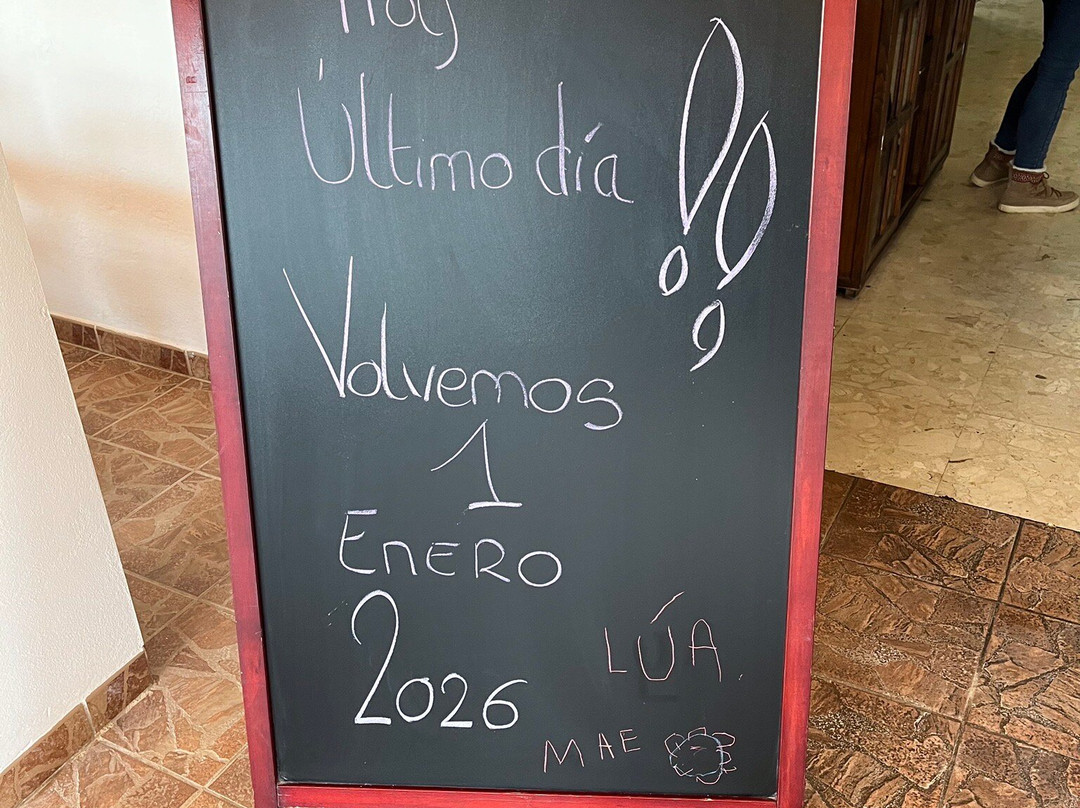 Hoy
Último día !!
Volvemos
1
Enero
2026
LÚA.
MAE